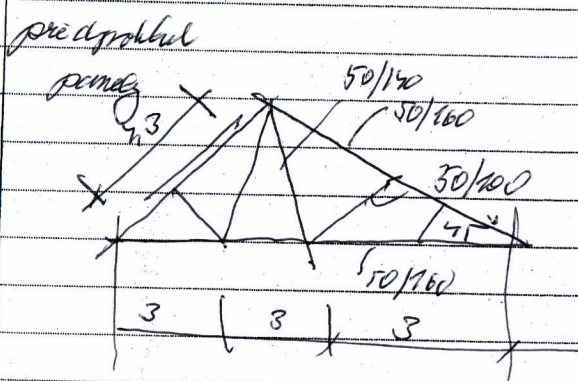 předpoklad
4,3
50/140
50/160
50/100
45°
50/160
3 3 3